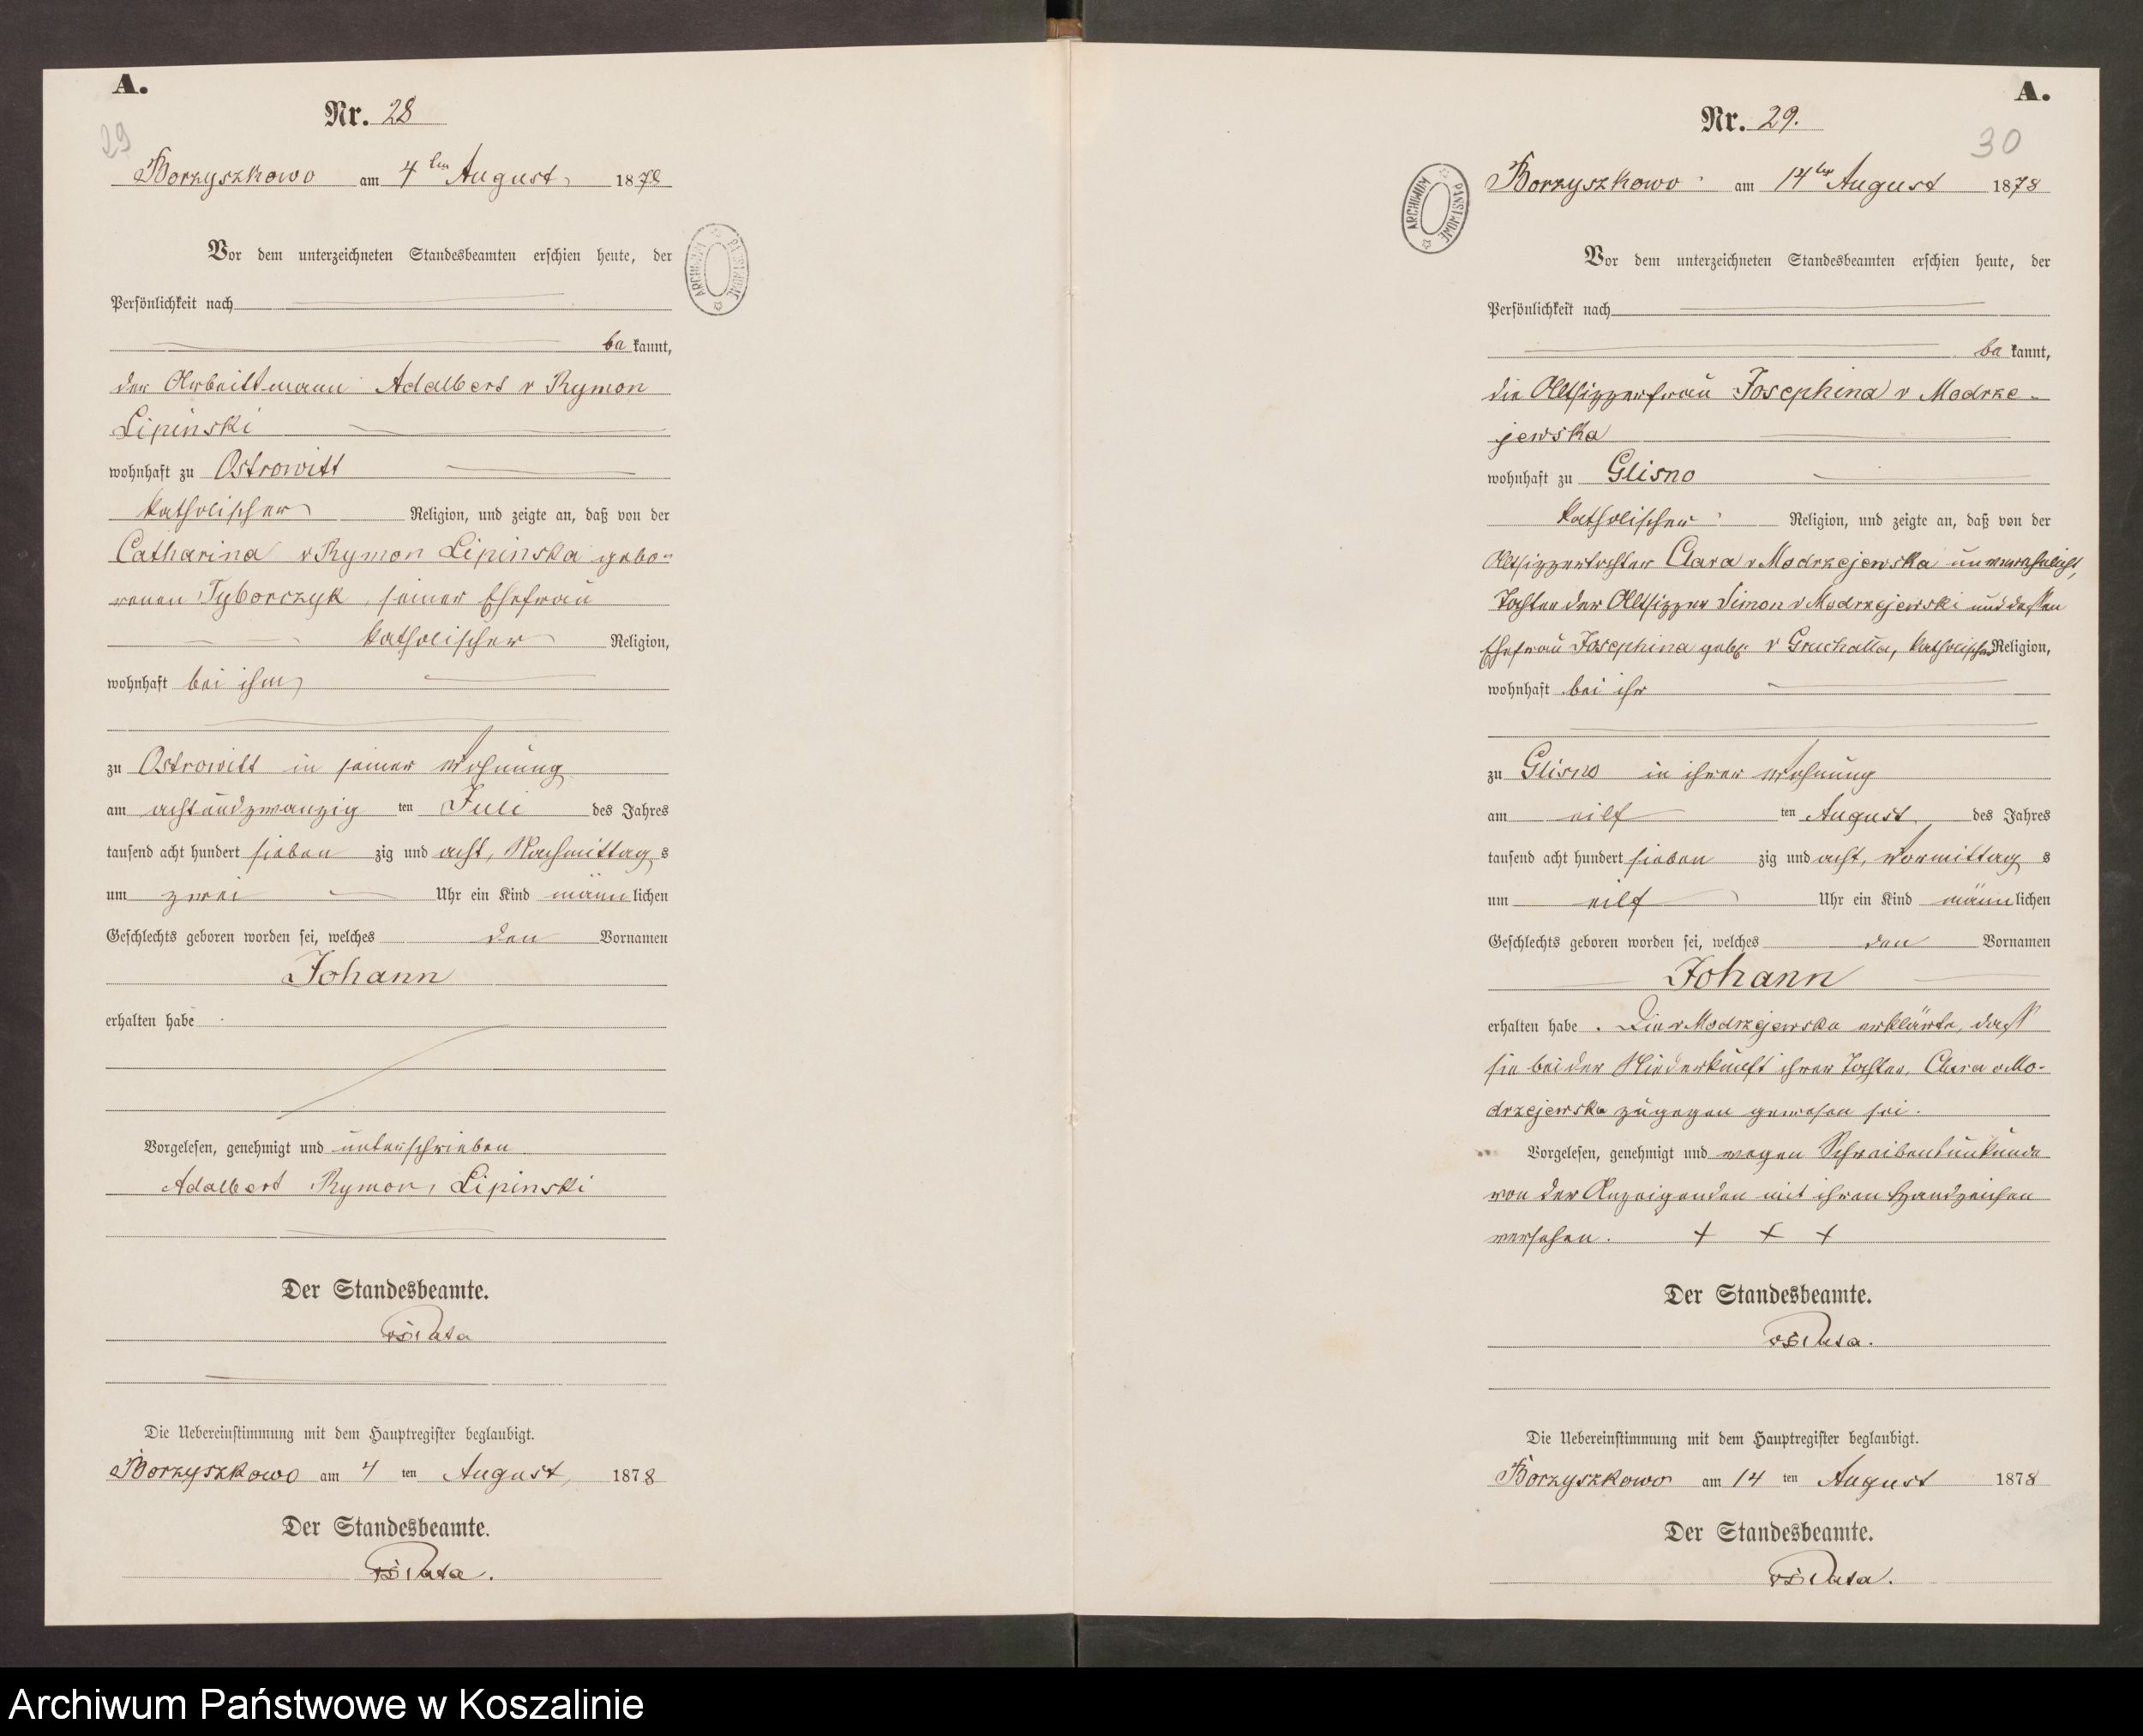 A.
Nr. 28
29
Borzyszkowo am 4ten August 1878
Vor dem unterzeichneten Standesbeamten erschien heute, der
Persönlichkeit nach
be kannt,
der Arbeitsmann Adalbert v Rymon
Lipinski
wohnhaft zu Ostrowitt
katholischer Religion, und zeigte an, daß von der
Catharina v Rymon Lipinska gebo-
renen Tyborczyk, seiner Ehefrau
katholischer Religion,
wohnhaft bei ihm
zu Ostrowitt in seiner Wohnung
am achtundzwanzig ten Juli des Jahres
tausend acht hundert sieben zig und acht, Nachmittag s
um zwei Uhr ein Kind männ lichen
Geschlechts geboren worden sei, welches den Vornamen
Johann
erhalten habe
Vorgelesen, genehmigt und unterschrieben
Adalbert Rymon Lipinski
Der Standesbeamte.
Die Uebereinstimmung mit dem Hauptregister beglaubigt.
Borzyszkowo am 4 ten August 1878
Der Standesbeamte.
ARCHIWUM PAŃSTWOWE
A.
Nr. 29.
30
Borzyszkowo am 14ten August 1878
ARCHIWUM PAŃSTWOWE
Vor dem unterzeichneten Standesbeamten erschien heute, der
Persönlichkeit nach
be kannt,
die Altsitzerfrau Josephina v Modrze-
jewska
wohnhaft zu Glisno
katholischer Religion, und zeigte an, daß von der
Altsitzertochter Clara v Modrzejewska unverehelicht,
Tochter der Altsitzer Simon v Modrzejewski und dessen
Ehefrau Josephina geb. v Gruchalla, katholischer Religion,
wohnhaft bei ihr
zu Glisno in ihrer Wohnung
am eilf ten August des Jahres
tausend acht hundert sieben zig und acht, Vormittag s
um eilf Uhr ein Kind männ lichen
Geschlechts geboren worden sei, welches den Vornamen
Johann
erhalten habe. Die v Modrzejewska erklärte, dass
sie bei der Niederkunft ihrer Tochter, Clara v Mo-
drzejewska zugegen gewesen sei.
Vorgelesen, genehmigt und wegen Schreibensunkunde
von der Anzeigenden mit ihren Handzeichen
versehen. + + +
Der Standesbeamte.
Die Uebereinstimmung mit dem Hauptregister beglaubigt.
Borzyszkowo am 14 ten August 1878
Der Standesbeamte.
Archiwum Państwowe w Koszalinie